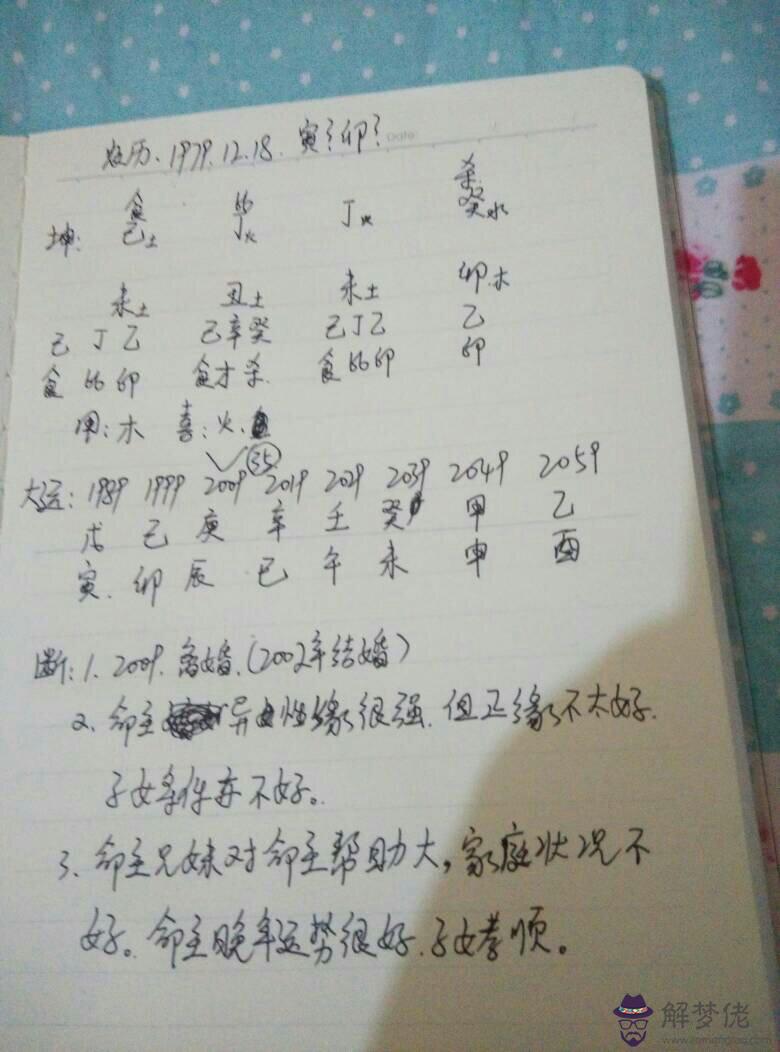 农历、1979.12.18. 寅?卯? Date
食 比 杀
坤: 己土 丁火 丁火 癸水
未土 丑土 未土 卯.木
己丁乙 己辛癸 己丁乙 乙
食比卩 食才杀. 食比卩 卩
用:木 喜:火、
35
大运: 1989 1999 2009 2019 2029 2039 2049 2059
戊 己 庚 辛 壬 癸 甲 乙
寅. 卯 辰 巳 午 未 申 酉
断: 1. 2009. 离婚.(2002年结婚)
2. 命主异性缘很强. 但正缘不太好.
子女条件亦不好。
3. 命主兄妹对命主帮助大,家庭状况不
好。命主晚年运势很好.子女孝顺。
解梦佬